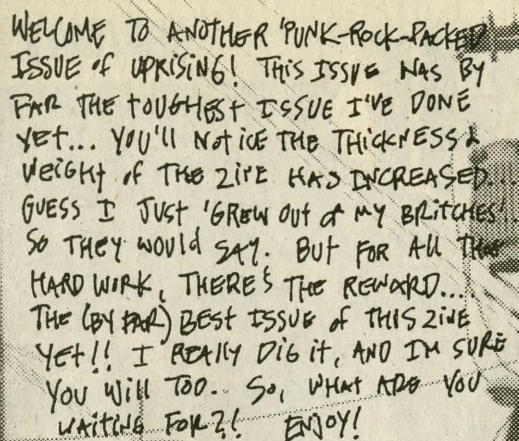 WELCOME TO ANOTHER 'PUNK-ROCK-PACKED
ISSUE of UPRISING! THIS ISSUE WAS BY
FAR THE TOUGHEST ISSUE I'VE DONE
YET... YOU'LL NOTICE THE THICKNESS &
WEIGHT of THE ZINE HAS INCREASED....
GUESS I JUST 'GREW OUT of MY BRITCHES'..
SO THEY WOULD SAY. BUT FOR ALL THE
HARD WORK, THERE'S THE REWARD....
THE (BY FAR) BEST ISSUE of THIS ZINE
YET!! I REALLY DIG it, AND IM SURE
YOU WILL TOO.. SO, WHAT ARE YOU
WAITING FOR?! ENJOY!